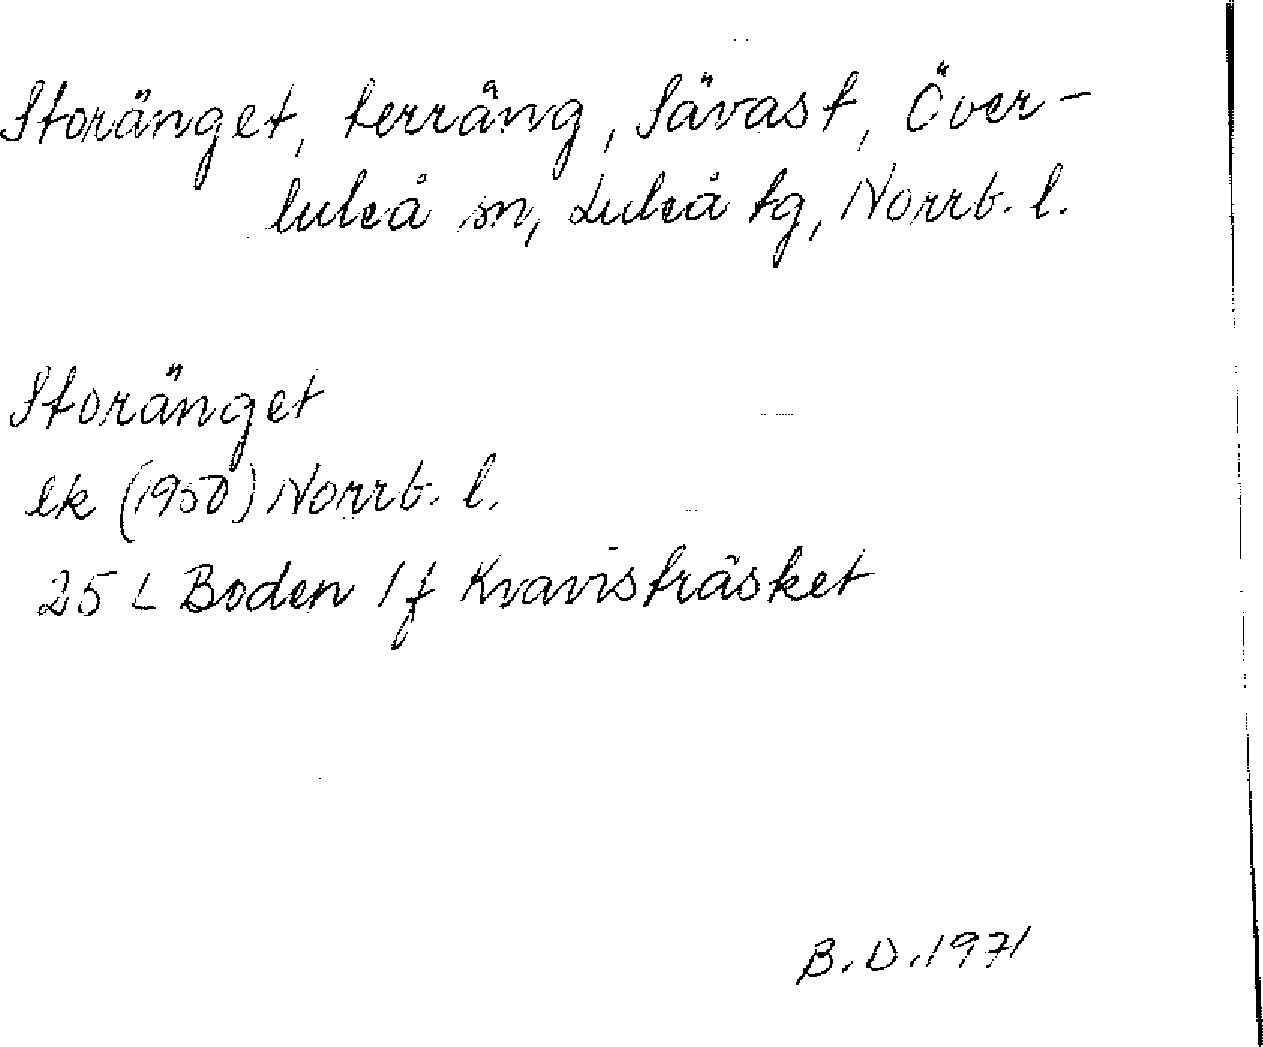 Storänget, terräng, Sävast, Över-
luleå sn, Luleå tg, Norrb. l.
Storänget
ek (1950) Norrb. l.
25 L Boden 1 f Kvavisträsket
B.D. 1971